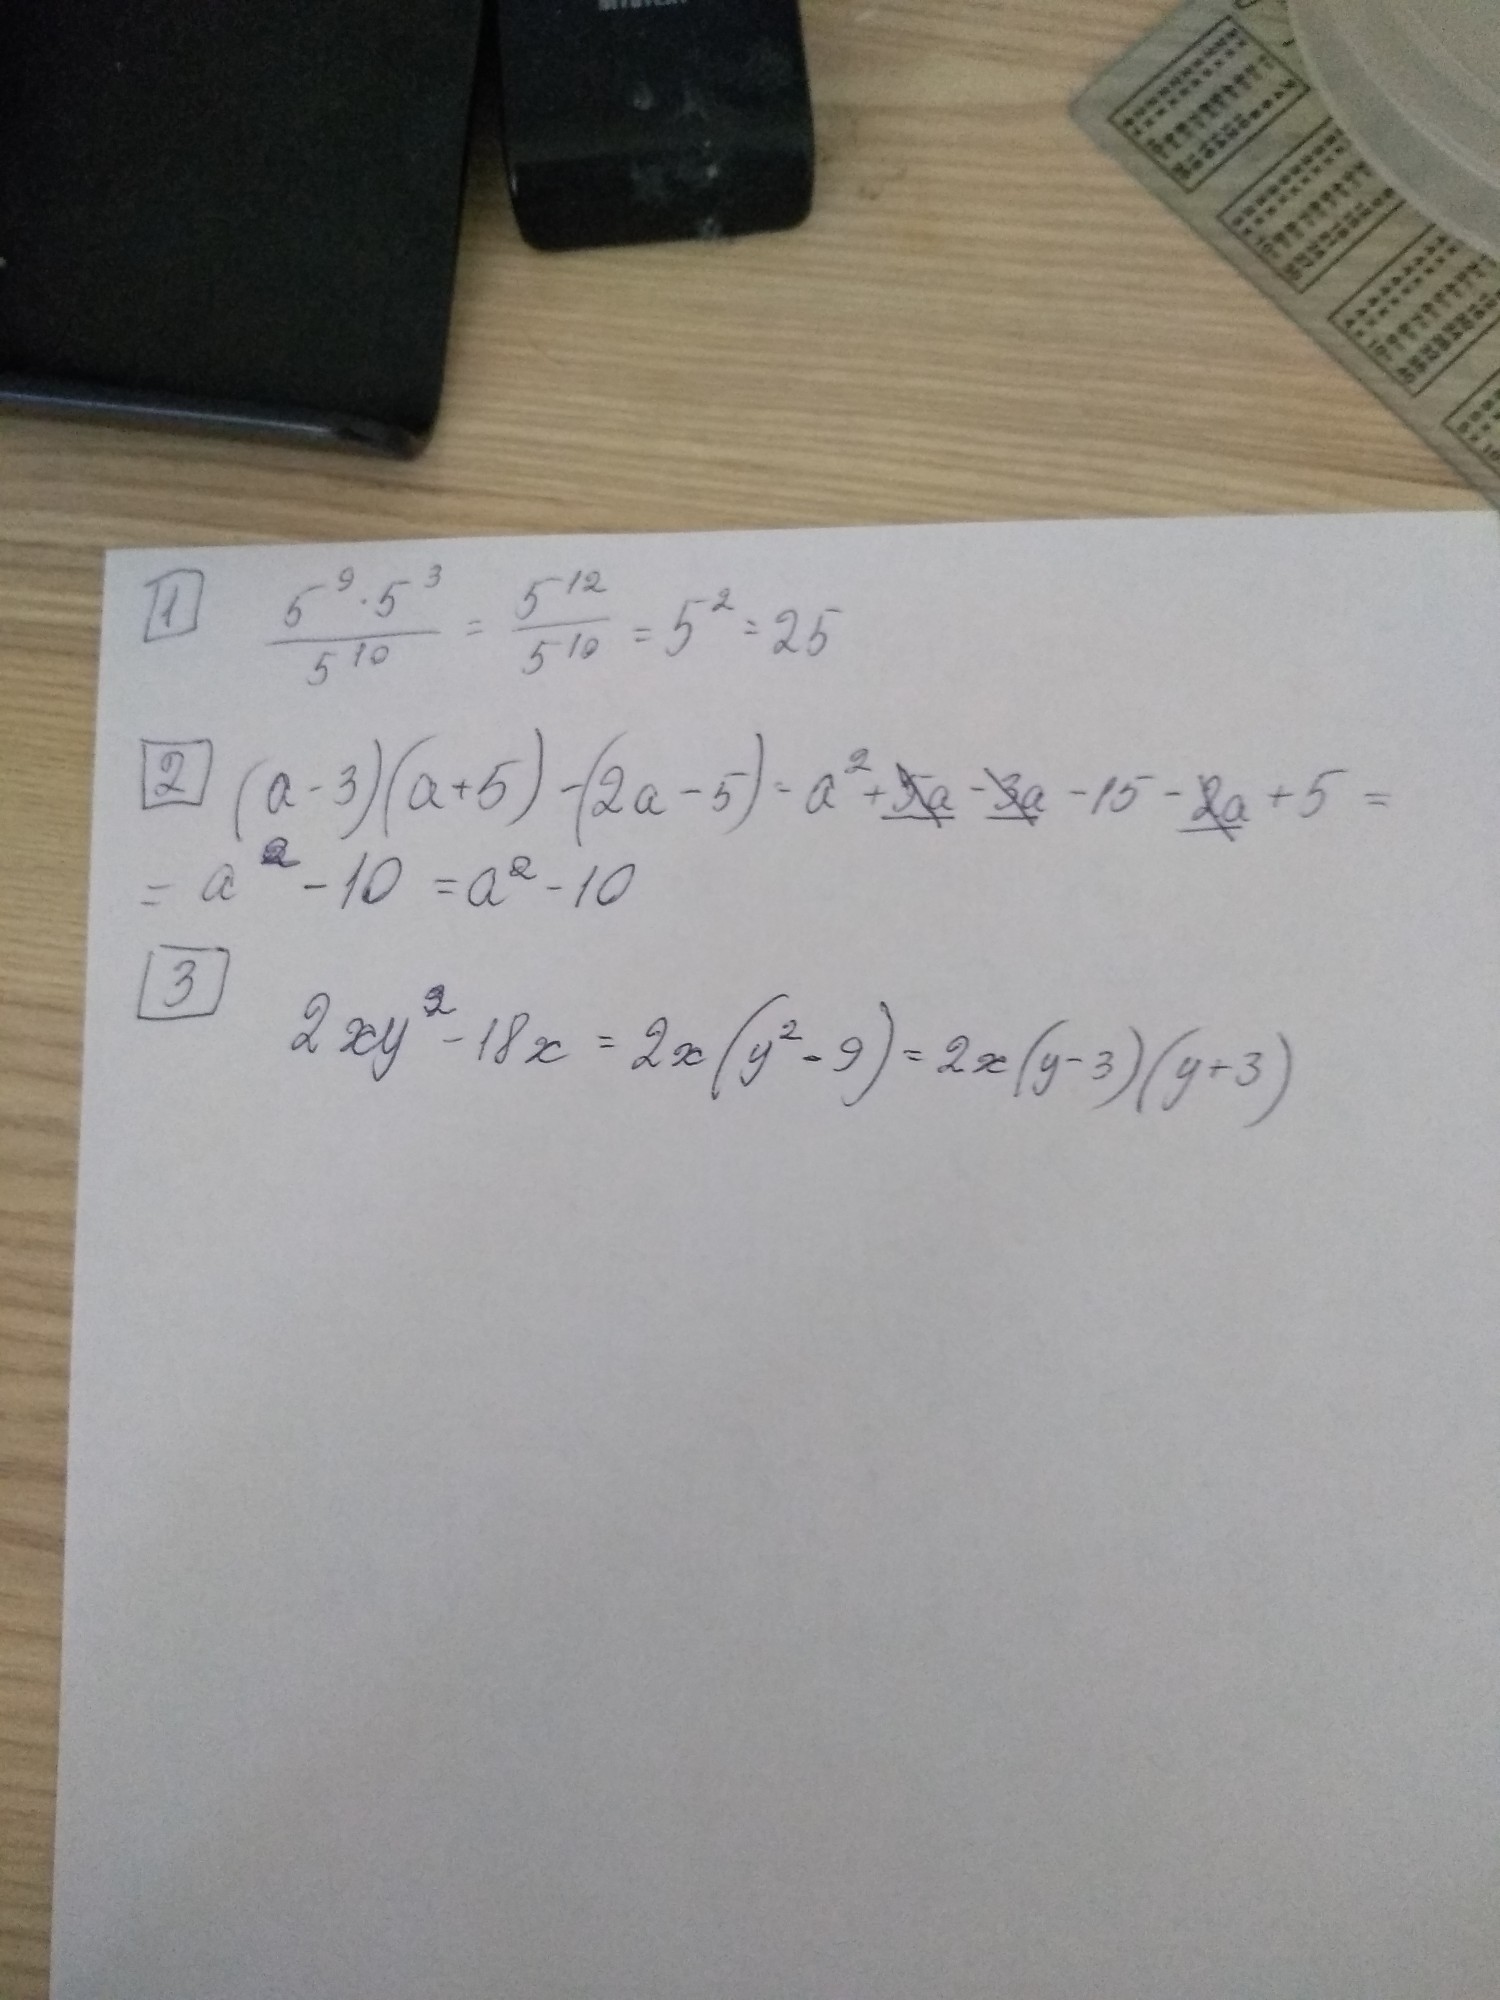 1 5^9·5^3/5^10 = 5^12/5^10 = 5^2 = 25
2 (a-3)(a+5)-(2a-5)=a^2+5a-3a-15-2a+5=
=a^2-10=a^2-10
3
2xy^2-18x=2x(y^2-9)=2x(y-3)(y+3)